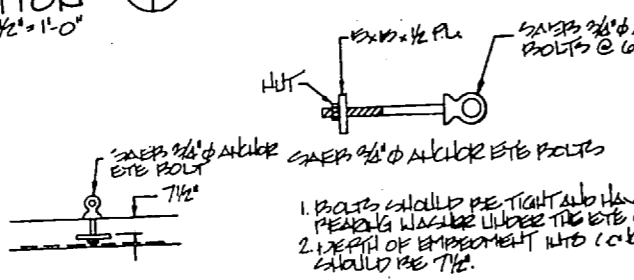 1/2" = 1'-0"
5x5x1/2 PL
SAEB 3/4"Ø
BOLTS @ 6
NUT
SAEB 3/4"Ø ANCHOR
EYE BOLT
7 1/2"
SAEB 3/4"Ø ANCHOR EYE BOLTS
1. BOLTS SHOULD BE TIGHT AND HAV
BEARING WASHER UNDER THE EYE
2. DEPTH OF EMBEDMENT INTO
SHOULD BE 7 1/2".